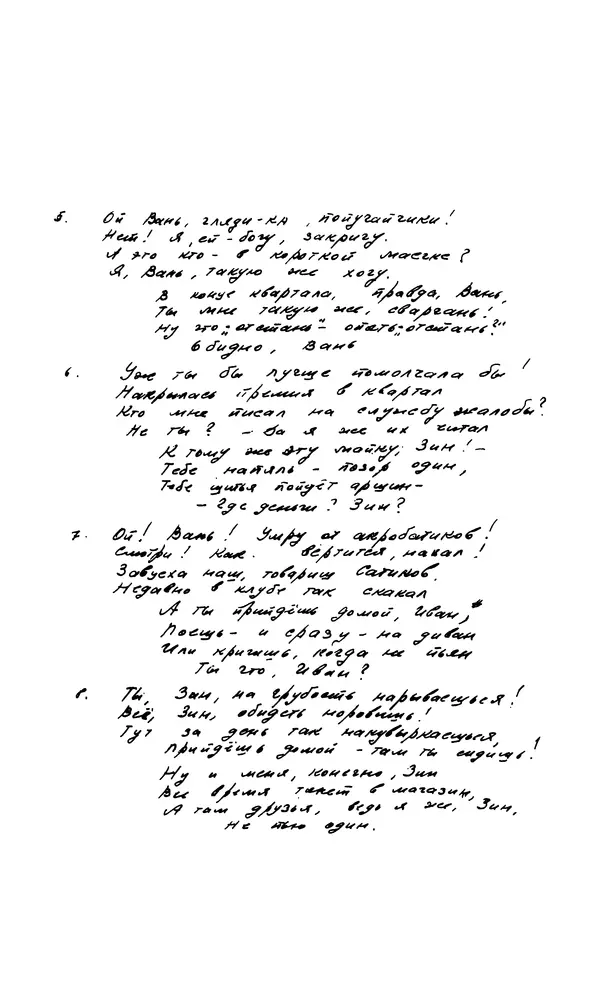 5. Ой Вань, гляди-ка, попугайчики!
Нет! Я, ей-богу, закричу.
А это кто - в короткой маечке?
Я, Вань, такую же хочу.
В конце квартала, правда, Вань,
Ты мне такую же, сваргань!
Ну что „отстань" - опять „отстань?"
Обидно, Вань
6. Уж ты бы лучше помолчала бы!
Накрылась премия в квартал
Кто мне писал на службу жалобы?
Не ты? - Да я же их читал
К тому же эту майку, Зин! -
Тебе напяль - позор один,
Тебе шитья пойдёт аршин -
- Где деньги? Зин?
7. Ой! Вань! Умру от акробатиков!
Смотри! Как вертится, нахал!
Завцеха наш, товарищ Сатиков,
Недавно в клубе так скакал
А ты прийдёшь домой, Иван,
Поешь - и сразу - на диван
Или кричишь, когда не пьян
Ты что, Иван?
8. Ты, Зин, на грубость нарываешься!
Всё, Зин, обидеть норовишь!
Тут за день так накувыркаешься,
Прийдёшь домой - там ты сидишь!
Ну и меня, конечно, Зин
Все время тянет в магазин,
А там друзья, ведь я же, Зин,
Не пью один.